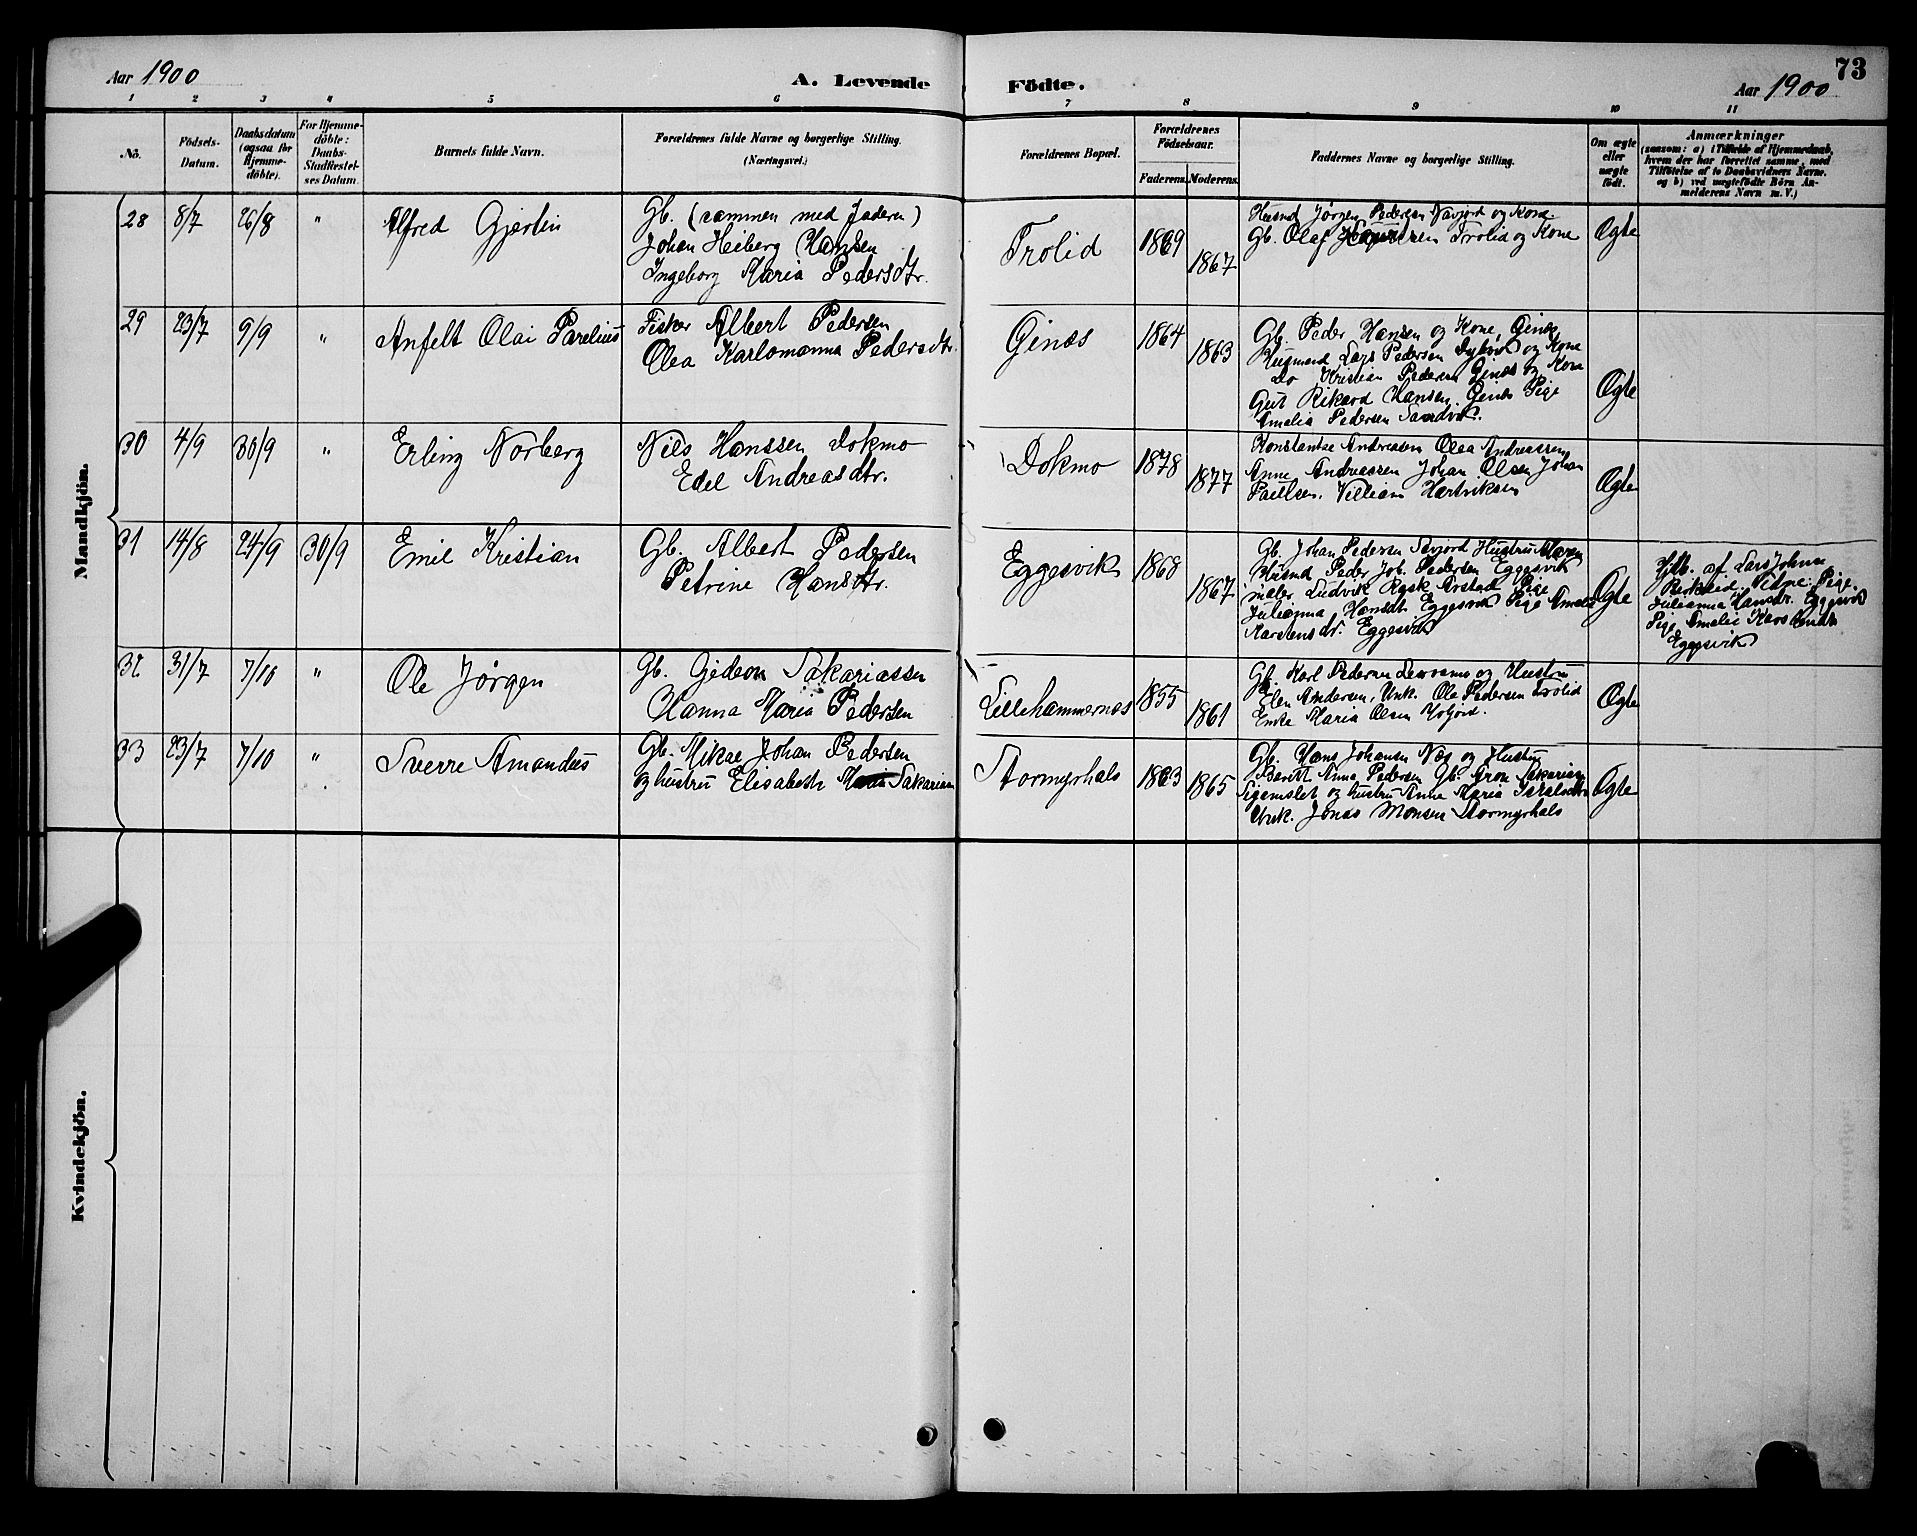 Aar 1900
A. Levende
Födte.
Aar 1900
73
1 2 3 4 5 6 7 8 9 10 11
No.
Födsels-
Datum.
Daabsdatum
(ogsaa for
Hjemme-
döbte).
For Hjemme-
döbte:
Daabs-
Stadfæstel-
ses Datum.
Barnets fulde Navn.
Forældrenes fulde Navne og borgerlige Stilling.
(Næringsvei.)
Forældrenes Bopæl.
Forældrenes
Födselsaar.
Faderens. Moderens.
Faddernes Navne og borgerlige Stilling.
Om ægte
eller
uægte
födt.
Anmærkninger
(saasom: a) i Tilfælde af Hjemmedaab,
hvem der har forrettet samme, med
Tilföielse af to Daabsvidners Navne.
og b) ved uægtefödte Börn An-
melderens Navn m. V.)
Mandkjön.
28 8/7 26/8 " Alfred Gjertin
Gb. (sammen med faderen)
Johan Heiberg Hansen
Ingeborg Maria Pedersdtr.
Trolid 1869 1867
Husmd Jørgen Pedersen Navjord og Kone
Gb. Olaf Trolid og Kone
Ægte
29 23/7 9/9 " Anfelt Olai Parelius
Fisker Albert Pedersen
Olea Karlomanna Pedersdtr.
Ginæs 1864 1863
Gb. Peder Hansen og Kone, Ginæs
Husmand Lars Pedersen og Kone
Do Kristian Pedersen Ginæs og Kone
Gut Rikard Hansen Ginæs Pige
Amalia Pedersen Sandvik.
Ægte
30 4/9 30/9 " Erling Norberg
Nils Hanssen Dokmo
Edel Andreasdtr.
Dokmo 1878 1877
Konstantse Andreasen Olea Andreassen
Anne Andreassen Johan Olsen Johan
Paulsen. Villiam Hartviksen
Ægte
31 14/8 24/9 30/9 Emil Kristian
Gb. Albert Pedersen
Petrine Hansdtr.
Eggesvik 1868 1867
Gb. Johan Pedersen Savjord Hustru Maren
Husmd Peder Joh. Pedersen Eggesvik
maler Ludvik Rask Arstad Pige
Julianna Hansdt. Eggesvik Pige Amalie
Karstensdr. Eggesvik
Ægte
Hjdb. af Lars Johnsen
Pige
Julianna Hansdr. Eggesvik
Pige Amalie Karstensdr.
Eggesvik
32 31/7 7/10 " Ole Jørgen
Gb. Gideon Sakariassen
Hanna Maria Pedersen
Lillehammernæs 1855 1861
Gb. Karl Pedersen og Hustru
Elen Andersen, Unk. Ole Pedersen Trolid
Enke Maria Olsen
Ægte
33 23/7 7/10 " Sverre Amandus
Gb. Mikae Johan Pedersen
og hustru Elisabeth Sakariasen
Stormyrhals 1863 1865
Gb. Hans Johansen Næs og Hustru
Berett Anna Pedersen Gb. Aron Sakariasen
og hustru Anne Maria
Unk. Jonas Monsen Stormyrhals
Ægte
Kvindekjön.